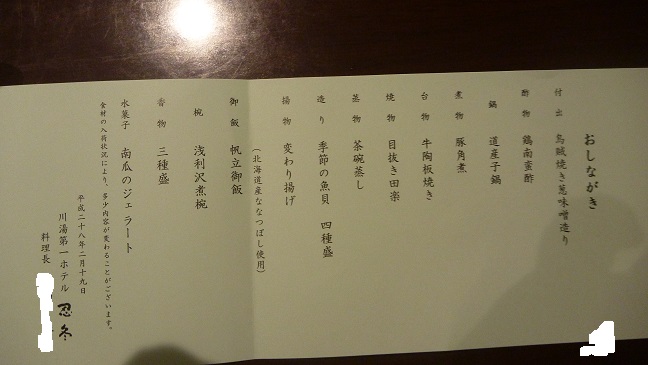 おしながき
付出 烏賊焼き葱味噌造り
酢物 鶏南蛮酢
鍋 道産子鍋
煮物 豚角煮
台物 牛陶板焼き
焼物 目抜き田楽
蒸物 茶碗蒸し
造り 季節の魚貝 四種盛
揚物 変わり揚げ
(北海道産ななつぼし使用)
御飯 帆立御飯
椀 浅利沢煮椀
香物 三種盛
水菓子 南瓜のジェラート
食材の入荷状況により、多少内容が変わることがございます。
平成二十八年二月十九日
川湯第一ホテル 忍冬
料理長